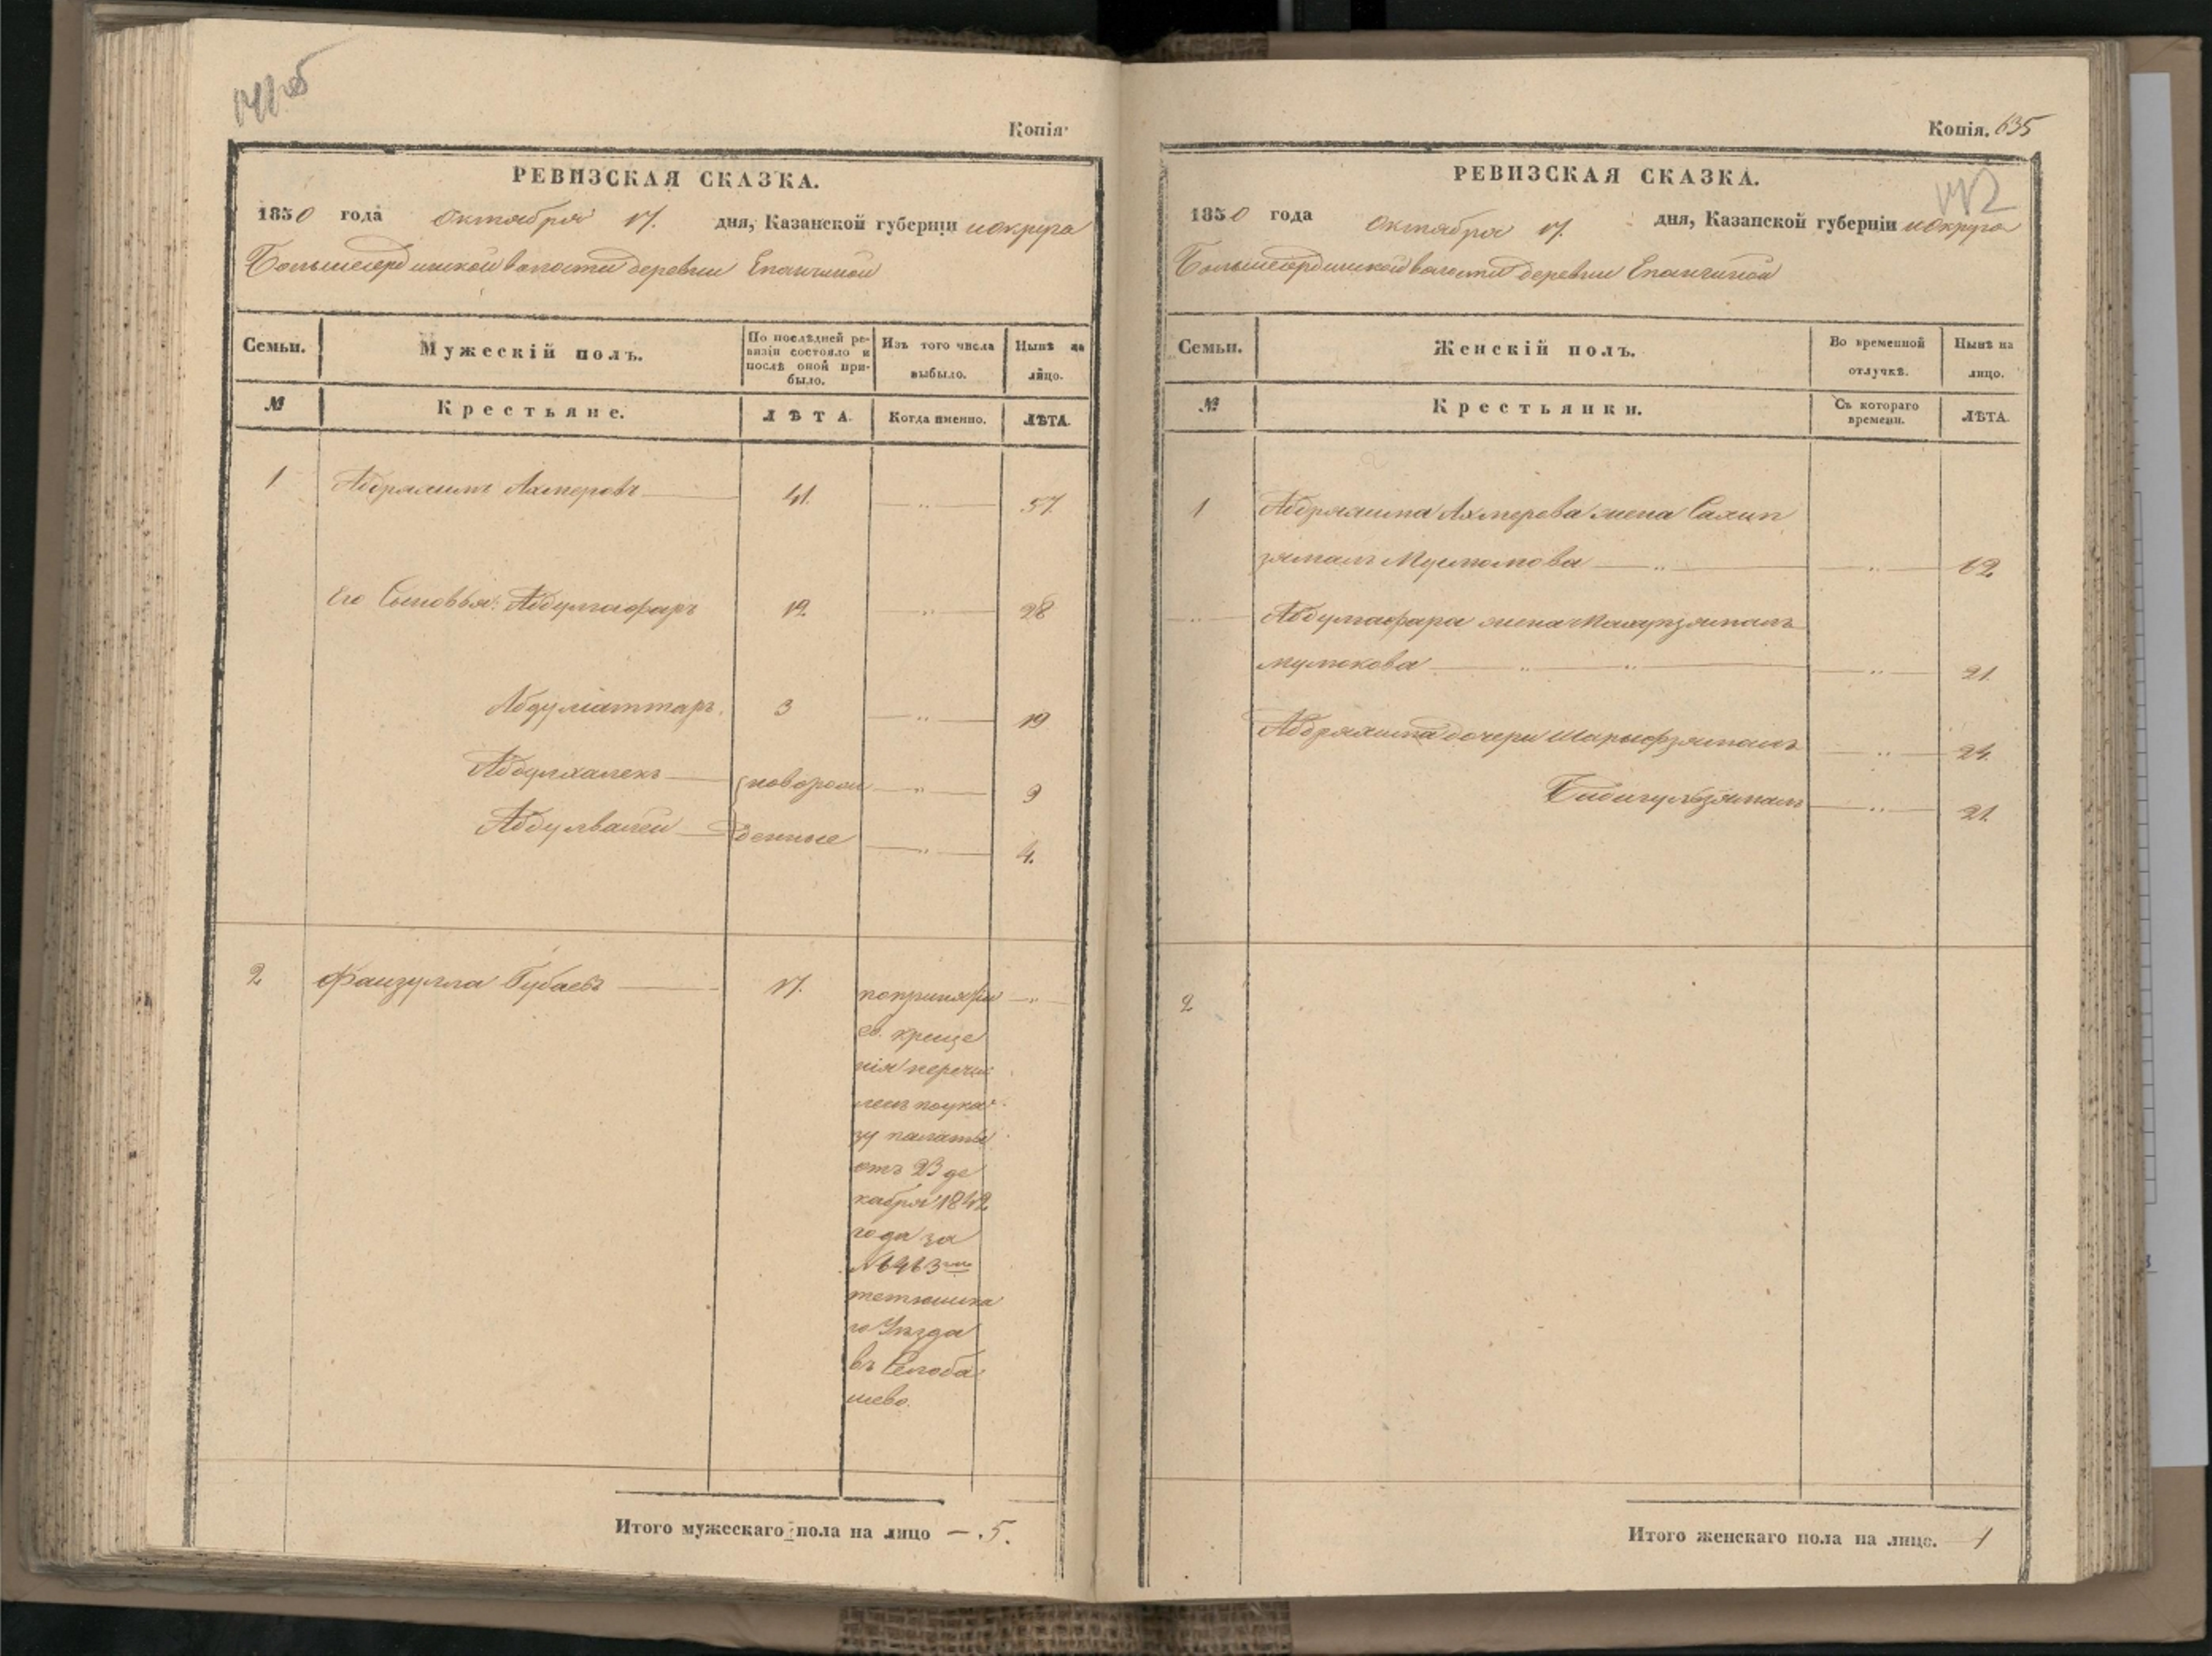 Копія.
РЕВИЗСКАЯ СКАЗКА.
1850 года октября 17. дня, Казанской губерніи и округа
волости деревни Епанчиной
Семьи. Мужескій полъ. По послѣдней ре-
визіи состояло и
послѣ оной при-
было. Изъ того числа
выбыло. Нынѣ на
лицо.
№ Крестьяне. ЛѢТА. Когда именно. ЛѢТА.
1 Абдряхимъ Ахмеровъ 41. 57.
Его Сыновья: Абдулгафаръ 12 28
Абдулгаттаръ. 3 19
Абдулхалекъ новорож 9
Абдулвалей денные 4.
2 Фаизулла Губаевъ 17. по принятіи
св. креще
нія перечис
ленъ по ука
зу палаты
отъ 23 де
кабря 1842
года за
№
тетюшска
го Уѣзда
въ
шево.
Итого мужескаго пола на лицо — 5.
Копія. 635
РЕВИЗСКАЯ СКАЗКА.
1850 года Октября 17. дня, Казанской губерніи и округа
волости деревни Епанчиной
Семьи. Женскій полъ. Во временной
отлучкѣ. Нынѣ на
лицо.
№ Крестьянки. Съ котораго
времени. ЛѢТА.
1 Абдряхима Ахмерова жена Сахип
зямалъ
Абдулгафара жена
мулюкова 21.
Абдряхима дочери Шарыфзямалъ
Бибигулзямалъ 21.
2
Итого женскаго пола на лицо.